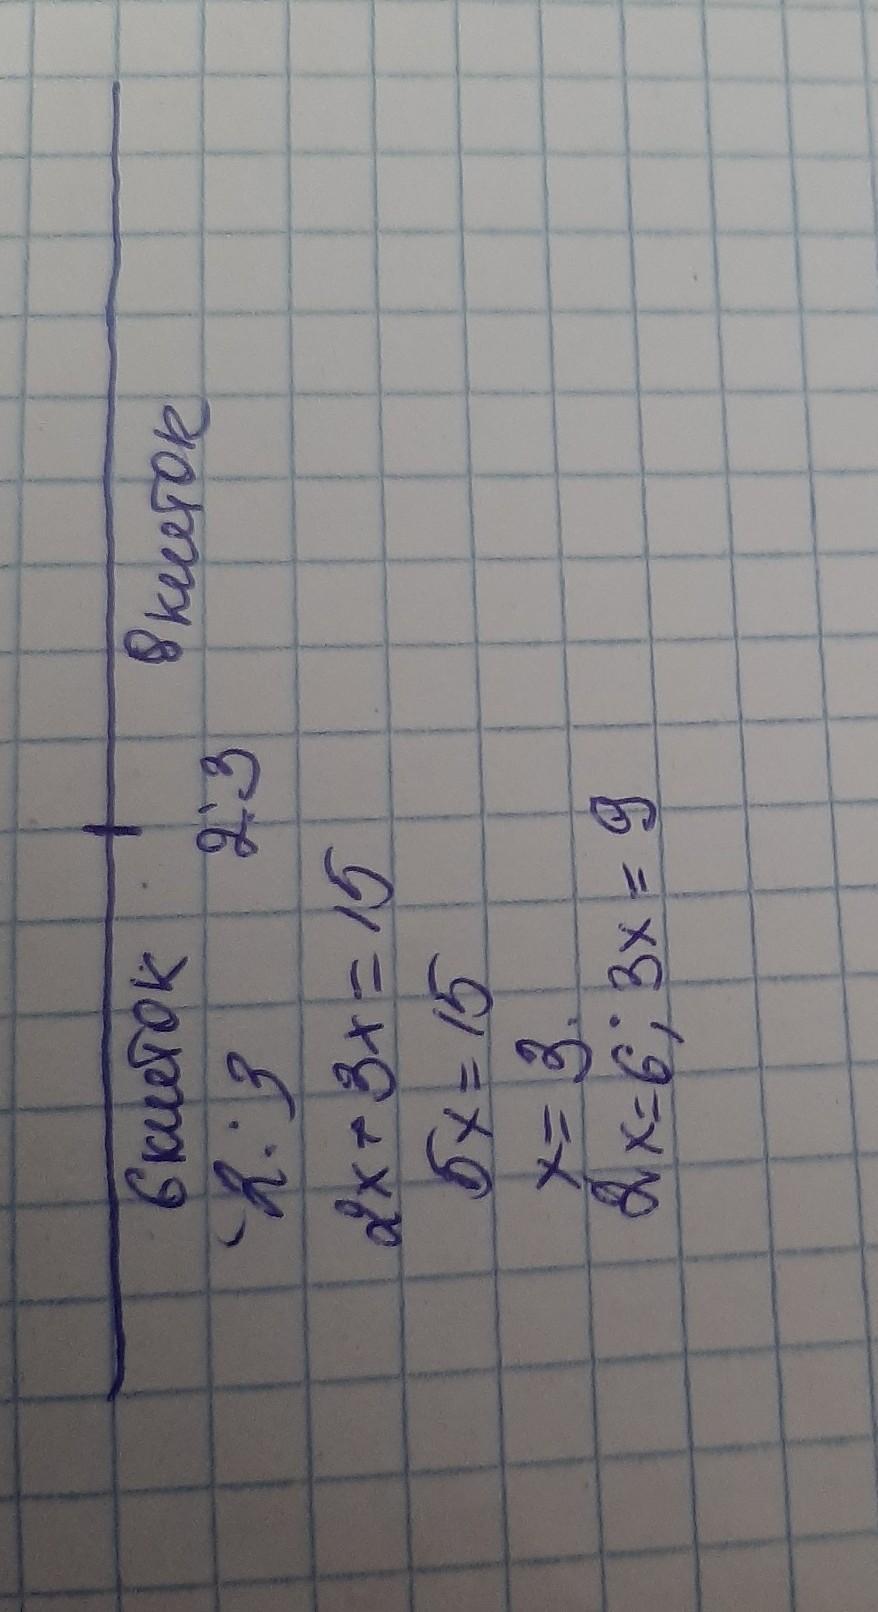 6 клеток 8 клеток
2:3 2:3
2x+3x=15
5x=15
x=3.
2x=6; 3x=9